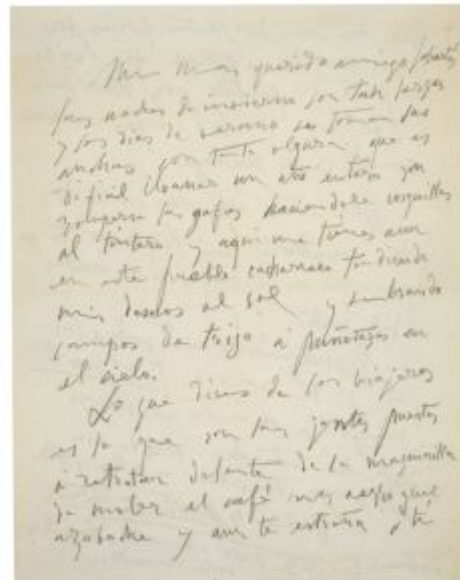 Mi mas querido amigo Sabartés
las noches de invierno son tan largas
y los dias de verano se toman las
anchas con tanta olgura que es
dificil llenar un año entero con
las gafas haciendole cosquillas
al tintero y aqui me tienes aun
en este pueblo tendiendo
mis deseos al sol y sembrando
campos de trigo a puñetazos en
el cielo.
Lo que dices de los viajeros
es lo que son las gentes puestas
a retratar delante de la maquinilla
de moler el café mas negro que
azabache y aun te extraña a ti